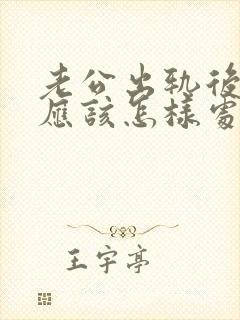 老公出軌後
應該怎樣處
王宇亭